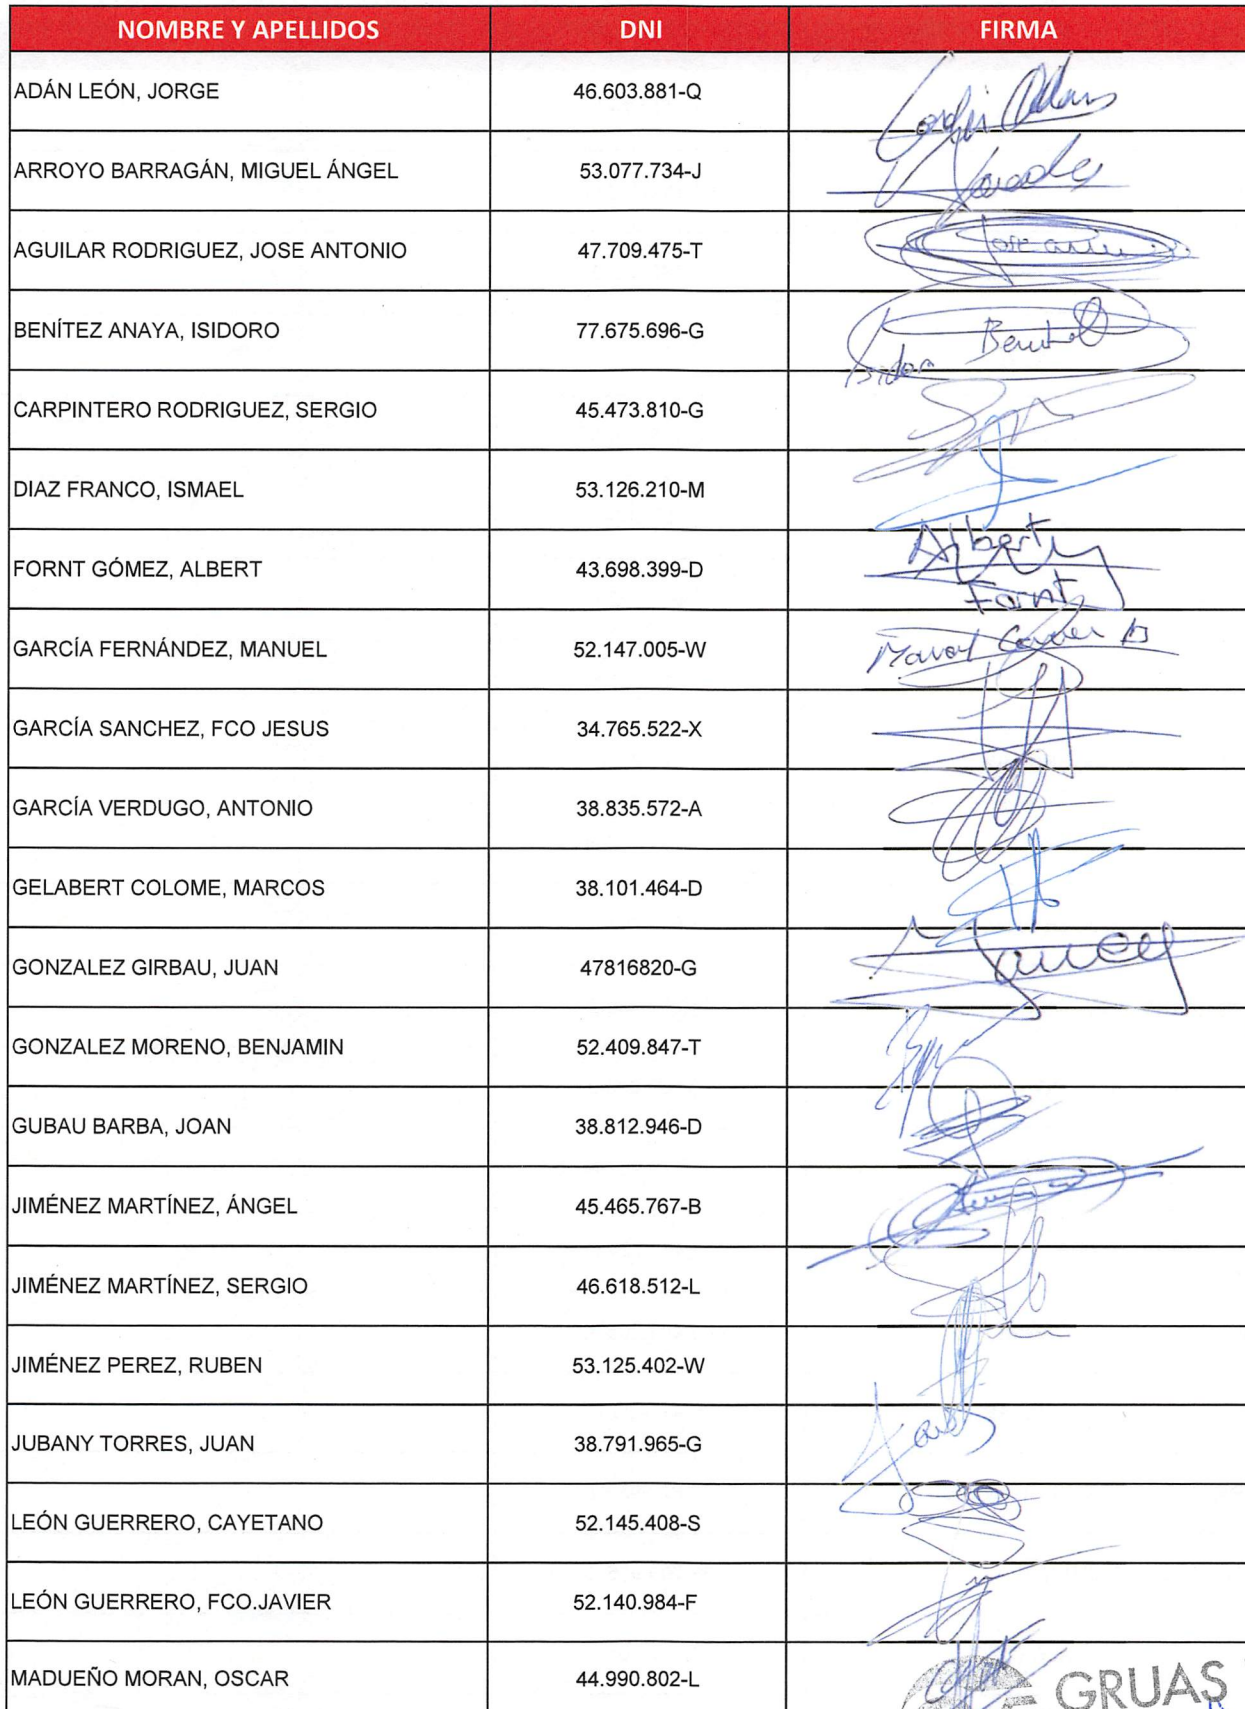 NOMBRE Y APELLIDOS DNI FIRMA
ADÁN LEÓN, JORGE 46.603.881-Q
ARROYO BARRAGÁN, MIGUEL ÁNGEL 53.077.734-J
AGUILAR RODRIGUEZ, JOSE ANTONIO 47.709.475-T
BENÍTEZ ANAYA, ISIDORO 77.675.696-G
CARPINTERO RODRIGUEZ, SERGIO 45.473.810-G
DIAZ FRANCO, ISMAEL 53.126.210-M
FORNT GÓMEZ, ALBERT 43.698.399-D Albert Fornt
GARCÍA FERNÁNDEZ, MANUEL 52.147.005-W
GARCÍA SANCHEZ, FCO JESUS 34.765.522-X
GARCÍA VERDUGO, ANTONIO 38.835.572-A
GELABERT COLOME, MARCOS 38.101.464-D
GONZALEZ GIRBAU, JUAN 47816820-G
GONZALEZ MORENO, BENJAMIN 52.409.847-T
GUBAU BARBA, JOAN 38.812.946-D
JIMÉNEZ MARTÍNEZ, ÁNGEL 45.465.767-B
JIMÉNEZ MARTÍNEZ, SERGIO 46.618.512-L
JIMÉNEZ PEREZ, RUBEN 53.125.402-W
JUBANY TORRES, JUAN 38.791.965-G
LEÓN GUERRERO, CAYETANO 52.145.408-S
LEÓN GUERRERO, FCO.JAVIER 52.140.984-F
MADUEÑO MORAN, OSCAR 44.990.802-L GRUAS